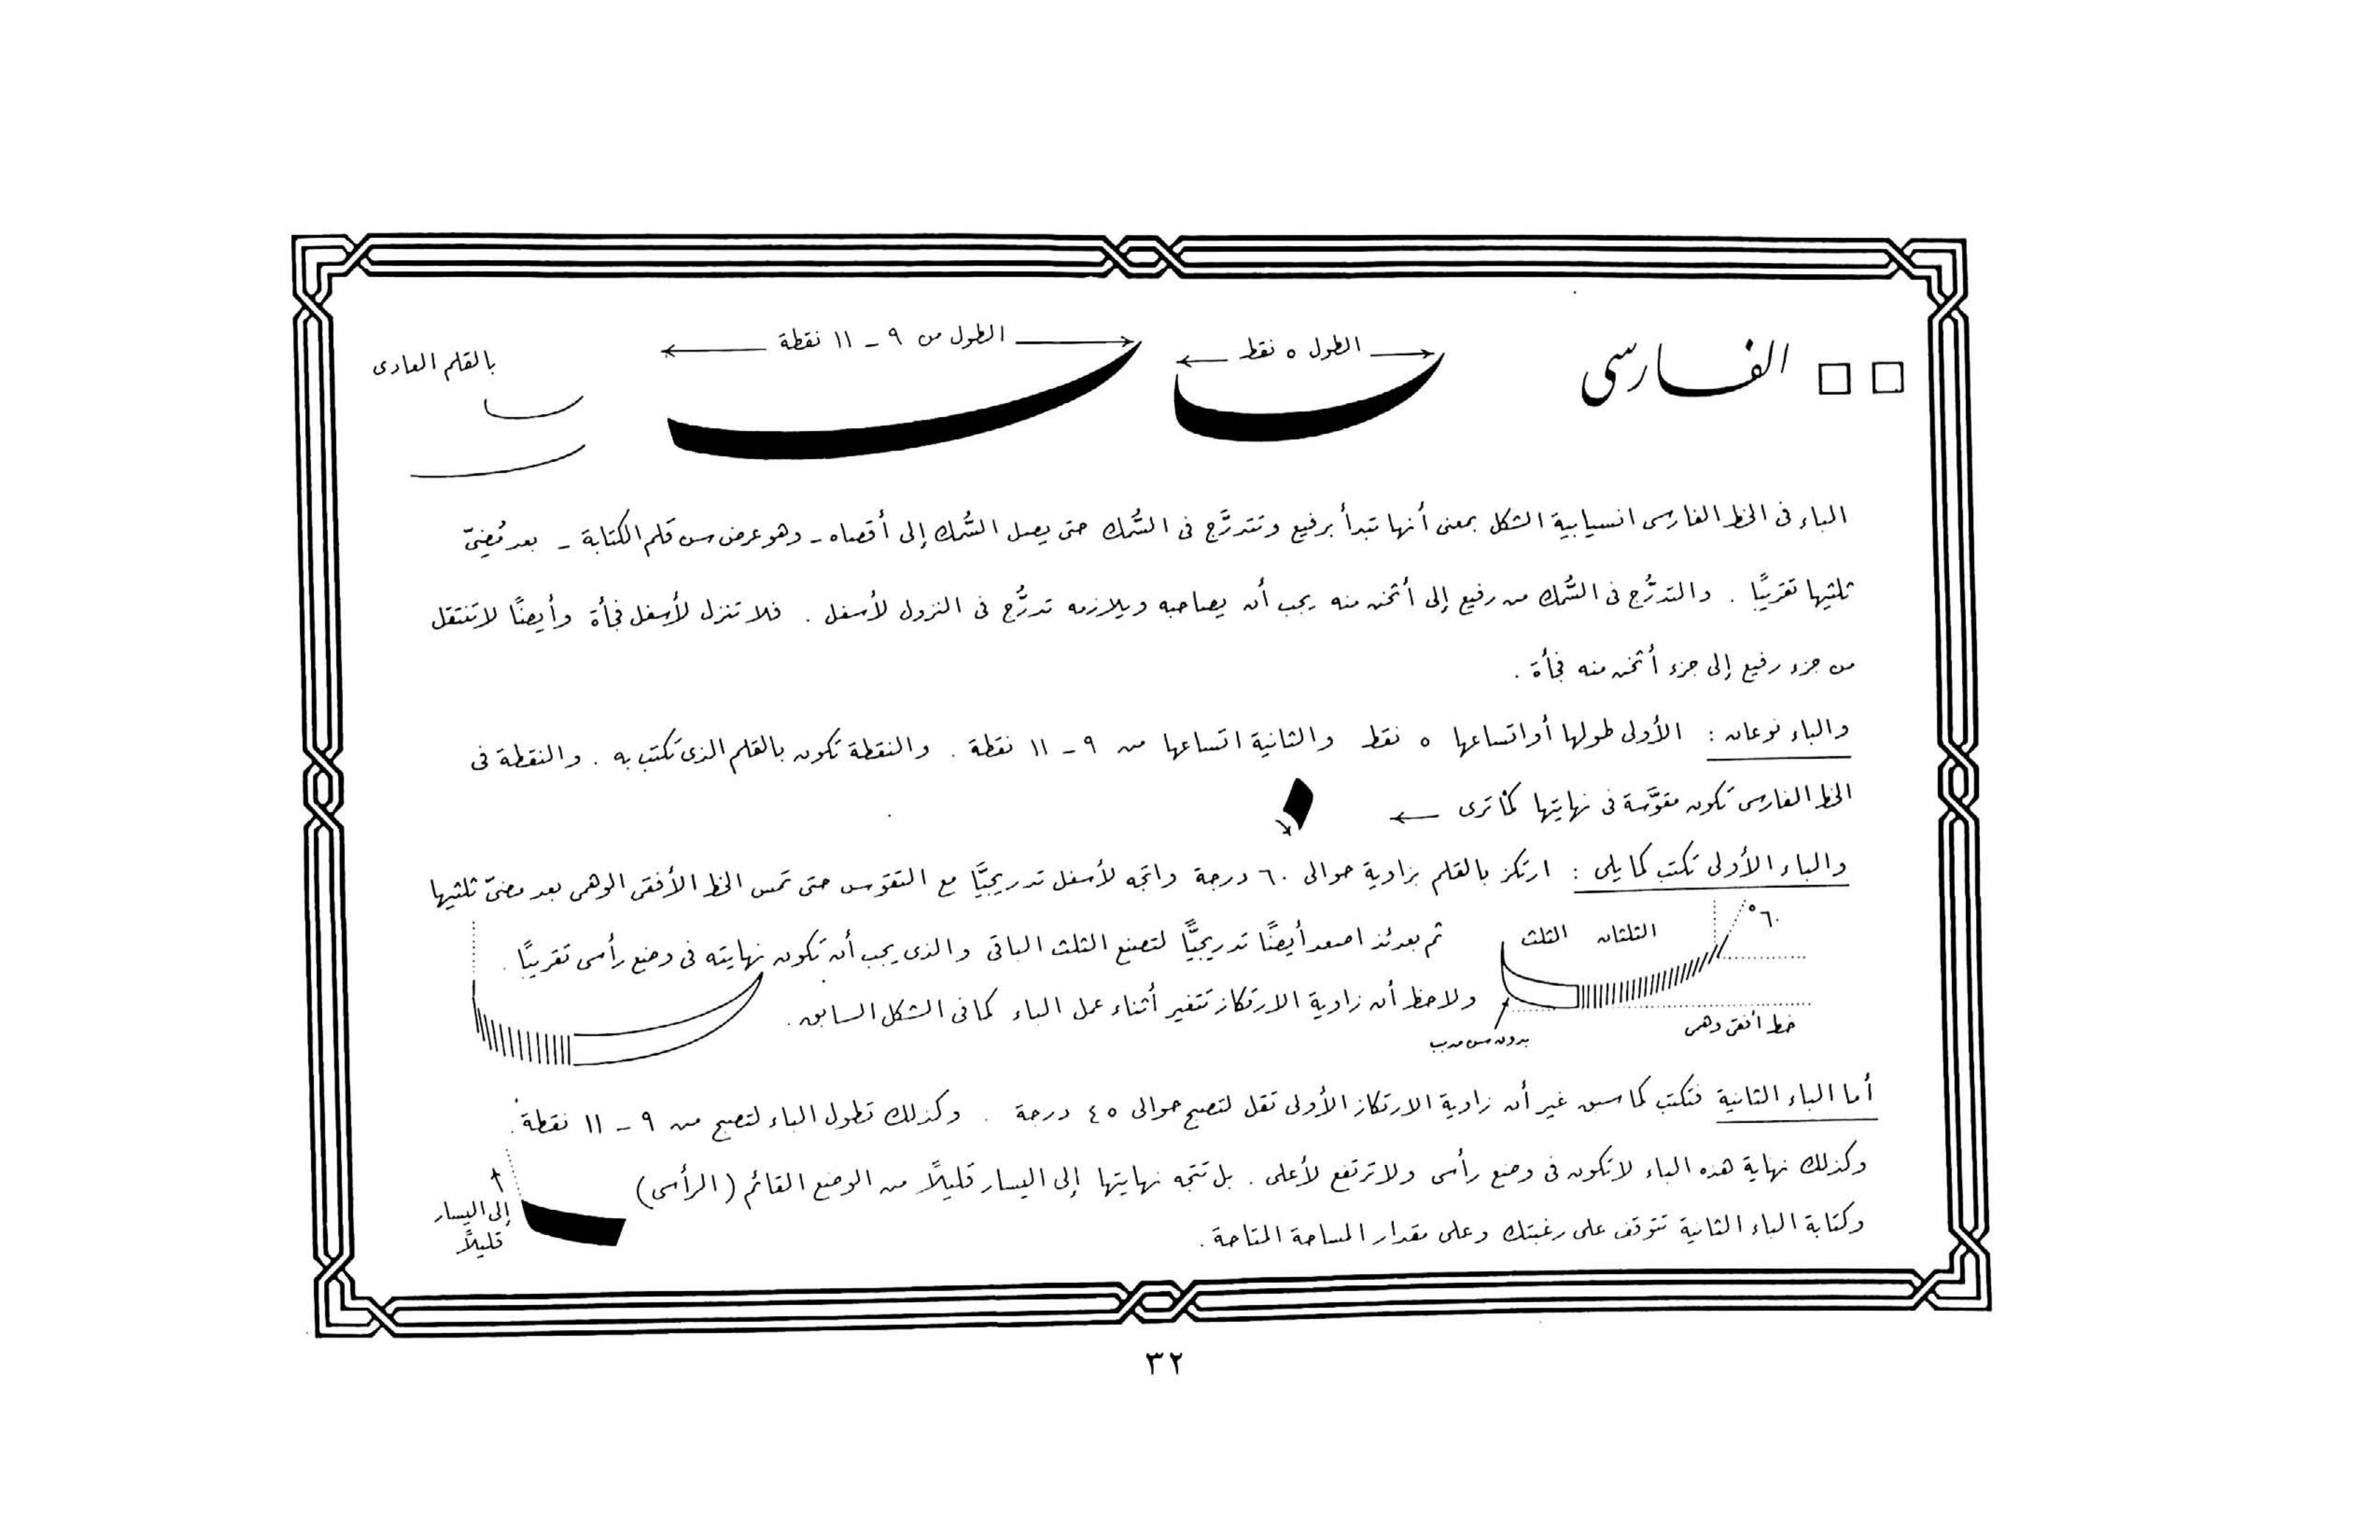 الفارسى
الطول ٥ نقط
الطول من ٩ - ١١ نقطة
بالقلم العادى
الباء فى الخط الفارسى انسيابية الشكل بمعنى أنها تبدأ برفيع وتتدرَّج فى السُّمك حتى يصل السُّمك إلى أقصاه - وهو عرض سن قلم الكتابة - بعد مُضِىّ
ثلثيها تقريبًا . والتدرُّج فى السُّمك من رفيع إلى أثخن منه يجب أن يصاحبه ويلازمه تدرُّج فى النزول لأسفل . فلا تنزل لأسفل فجأة وأيضًا لا تنتقل
من جزء رفيع إلى جزء أثخن منه فجأة .
والباء نوعان : الأولى طولها أو اتساعها ٥ نقط والثانية اتساعها من ٩ - ١١ نقطة . والنقطة تكون بالقلم الذى تكتب به . والنقطة فى
الخط الفارسى تكون مقوَّسة فى نهايتها كما ترى
والباء الأولى تكتب كما يلى : ارتكز بالقلم بزاوية حوالى ٦٠ درجة واتجه لأسفل تدريجيًّا مع التقوس حتى تمس الخط الأفقى الوهمى بعد مضىّ ثلثيها
٦٠°
الثلثان الثلث
ثم بعدئذ اصعد أيضًا تدريجيًّا لتصنع الثلث الباقى والذى يجب أن تكون نهايته فى وضع رأسى تقريبًا .
ولاحظ أن زاوية الارتكاز تتغير أثناء عمل الباء كما فى الشكل السابق .
خط أفقى وهمى
بدون سن مدبب
أما الباء الثانية فتكتب كما سبق غير أن زاوية الارتكاز الأولى تقل لتصبح حوالى ٤٥ درجة . وكذلك تطول الباء لتصبح من ٩ - ١١ نقطة .
وكذلك نهاية هذه الباء لا تكون فى وضع رأسى ولا ترتفع لأعلى . بل تتجه نهايتها إلى اليسار قليلًا من الوضع القائم (الرأسى)
إلى اليسار
قليلًا
وكتابة الباء الثانية تتوقف على رغبتك وعلى مقدار المساحة المتاحة .
٣٢